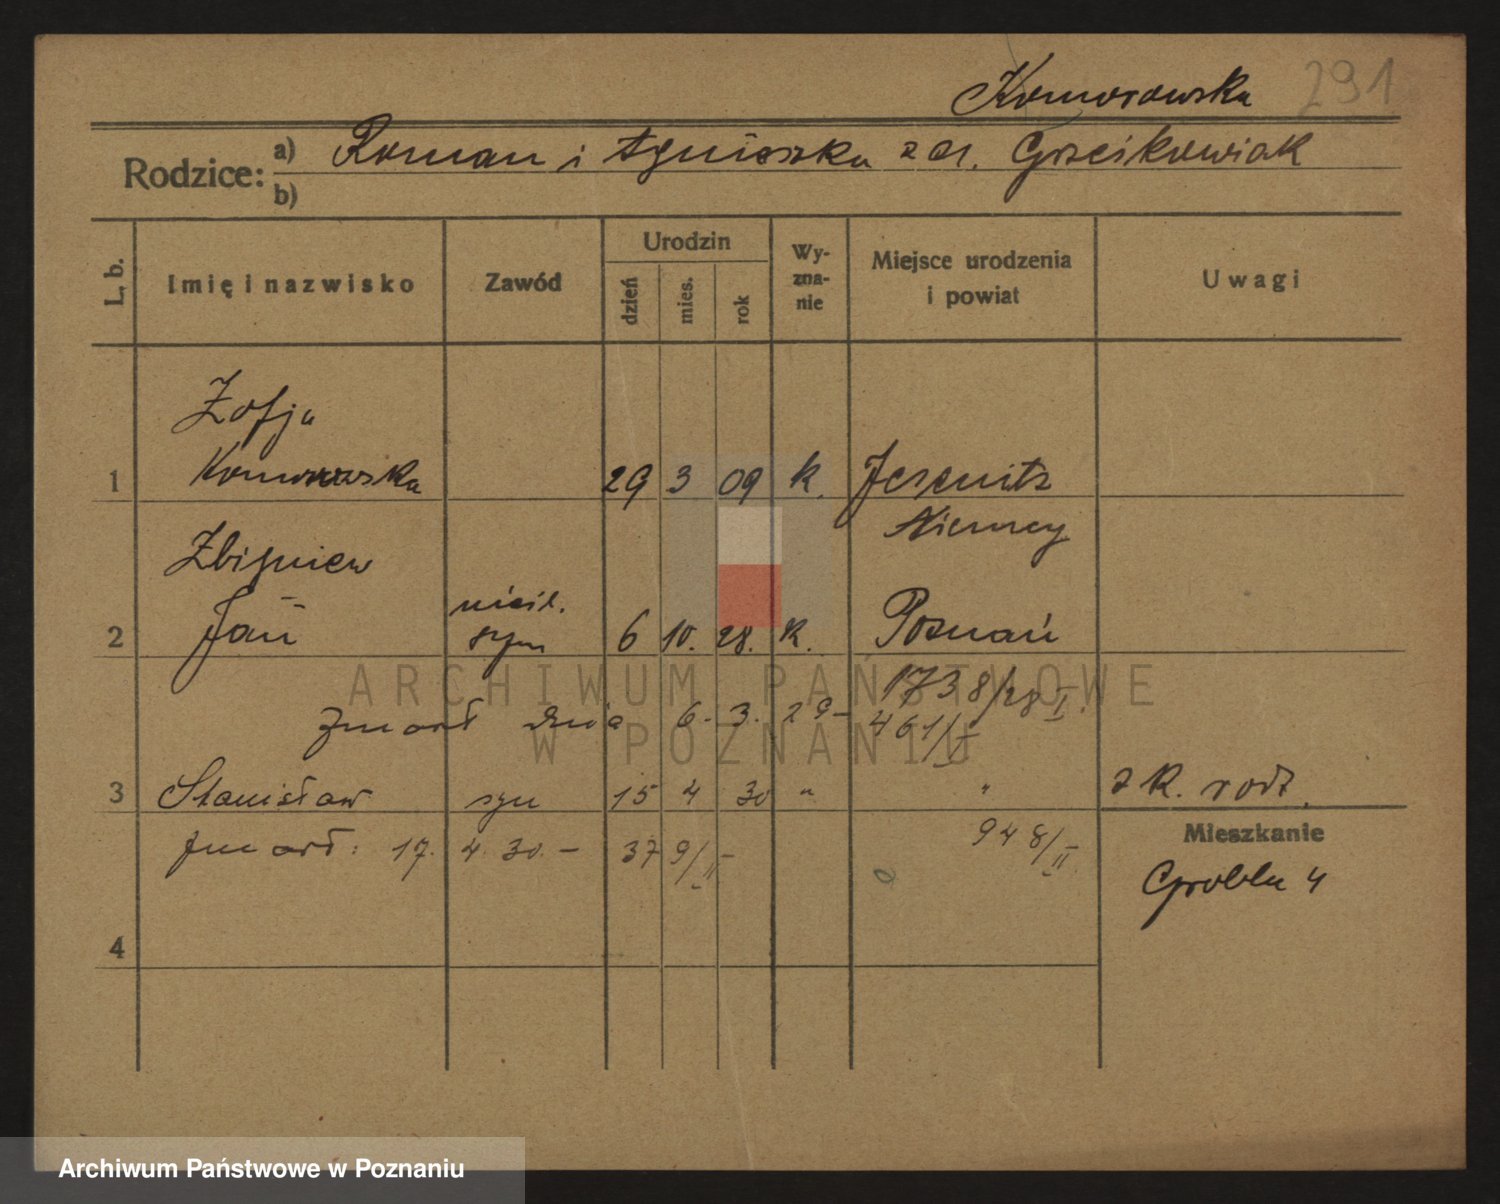 Komorowska 291
Rodzice: a) Roman i Agnieszka z d. Grześkowiak
b)
L. b. Imię i nazwisko Zawód Urodzin dzień mies. rok Wy-zna-nie Miejsce urodzenia i powiat Uwagi
Zofja
1 Komorowska 29 3 09 k. Jessnitz
Niemcy
Zbigniew
nieśl.
2 Jan syn 6 10. 28. k. Poznań
1738/28 I.
zmarł dnia 6. 3. 29 - 461/I
3 Stanisław syn 15 4 30 " " z k. rodz.
zmarł: 17. 4. 30. - 379/II - 948/II
Mieszkanie
Grobla 4
4
ARCHIWUM PAŃSTWOWE
W POZNANIU
Archiwum Państwowe w Poznaniu